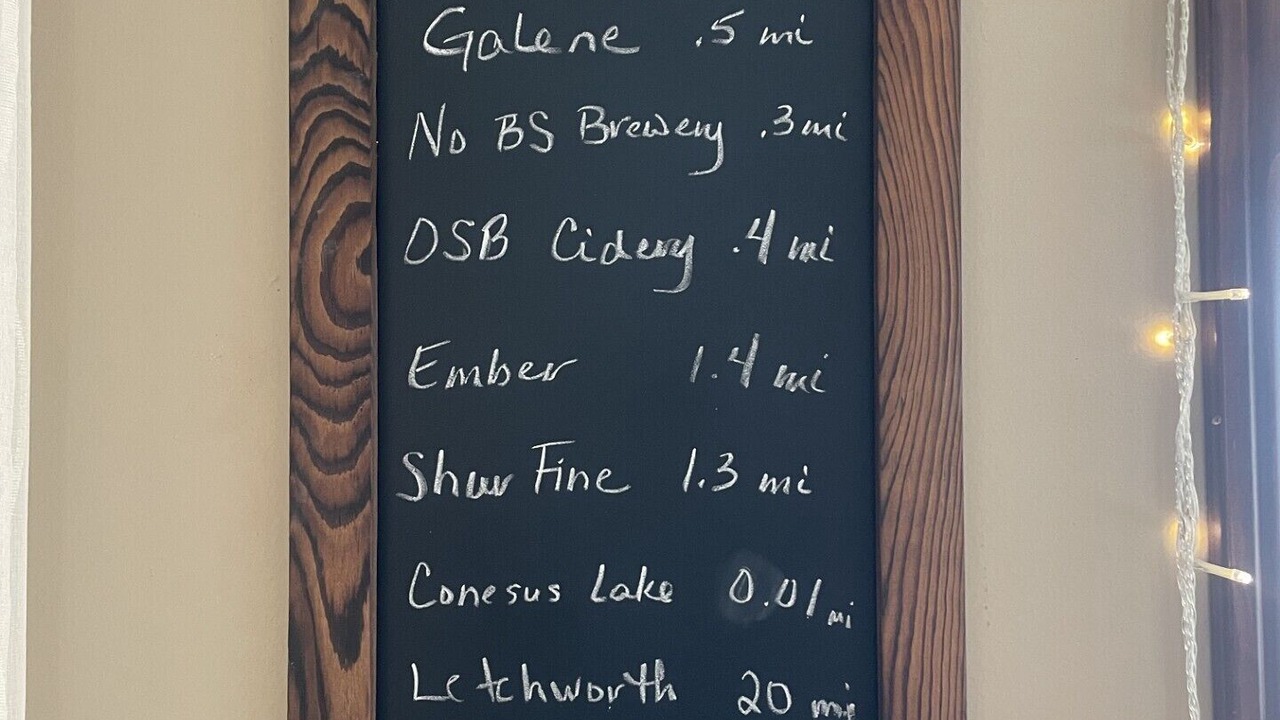 Galene .5 mi
No BS Brewery .3 mi
OSB Cidery .4 mi
Ember 1.4 mi
Shur Fine 1.3 mi
Conesus Lake 0.01 mi
Letchworth 20 mi